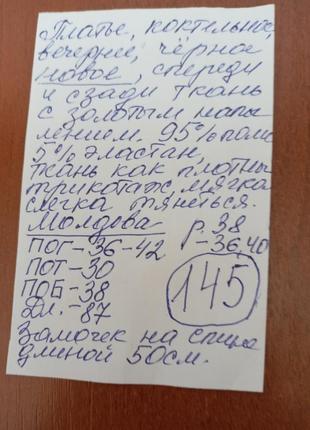 Платье, коктельное,
вечернее, чёрное
новое, спереди
и сзади ткань
с золотым напы
лением. 95% поли
5% эластан,
ткань как плотны
трикотаж, мягка
слегка тянеться.
Молдова р. 38
ПОГ-36-42 -36,40
ПОТ-30
ПОБ-38 145
Дл.-87
Замочек на спине
длиной 50см.